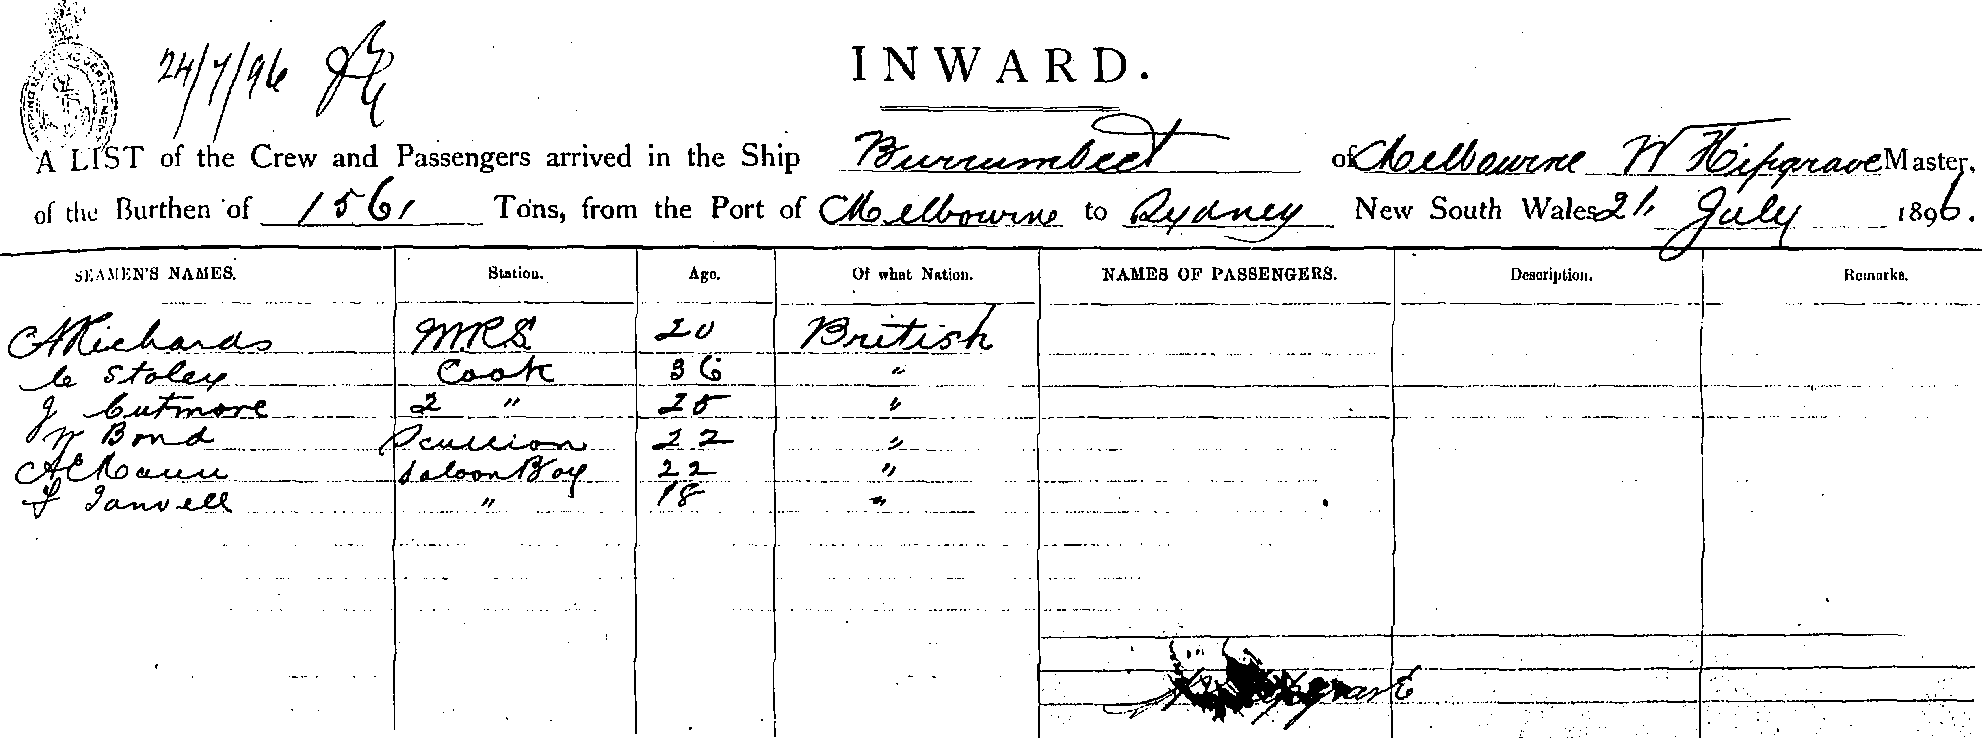 24/7/96
INWARD.
A LIST of the Crew and Passengers arrived in the Ship Burrumbeet of Melbourne W Hipgrave Master,
of the Burthen of 1561 Tons, from the Port of Melbourne to Sydney New South Wales 21 July 1896.
SEAMEN'S NAMES. Station. Age. Of what Nation. NAMES OF PASSENGERS. Description. Remarks.
A Richards M.R.S 20 British
C Stoley Cook 36 "
J Cutmore 2 " 25 "
W Bond Scullion 22 "
A Mann Saloon Boy 22 "
F " 18 "